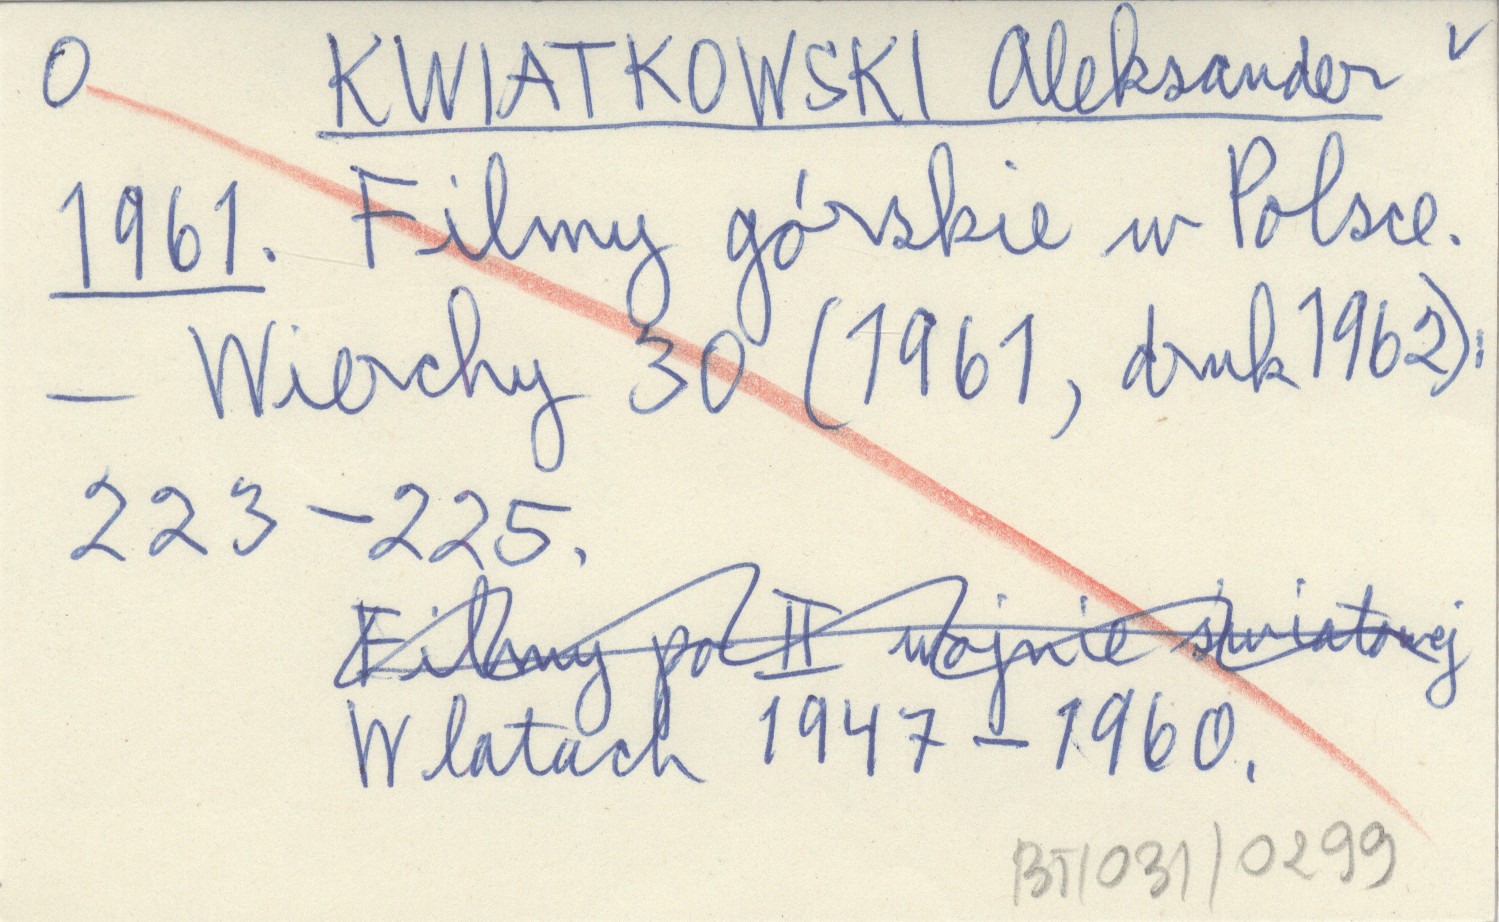 O KWIATKOWSKI Aleksander v
1961. Filmy górskie w Polsce.
— Wierchy 30 (1961, druk 1962):
223-225.
Filmy po II wojnie światowej
W latach 1947-1960.
BT/031/0299